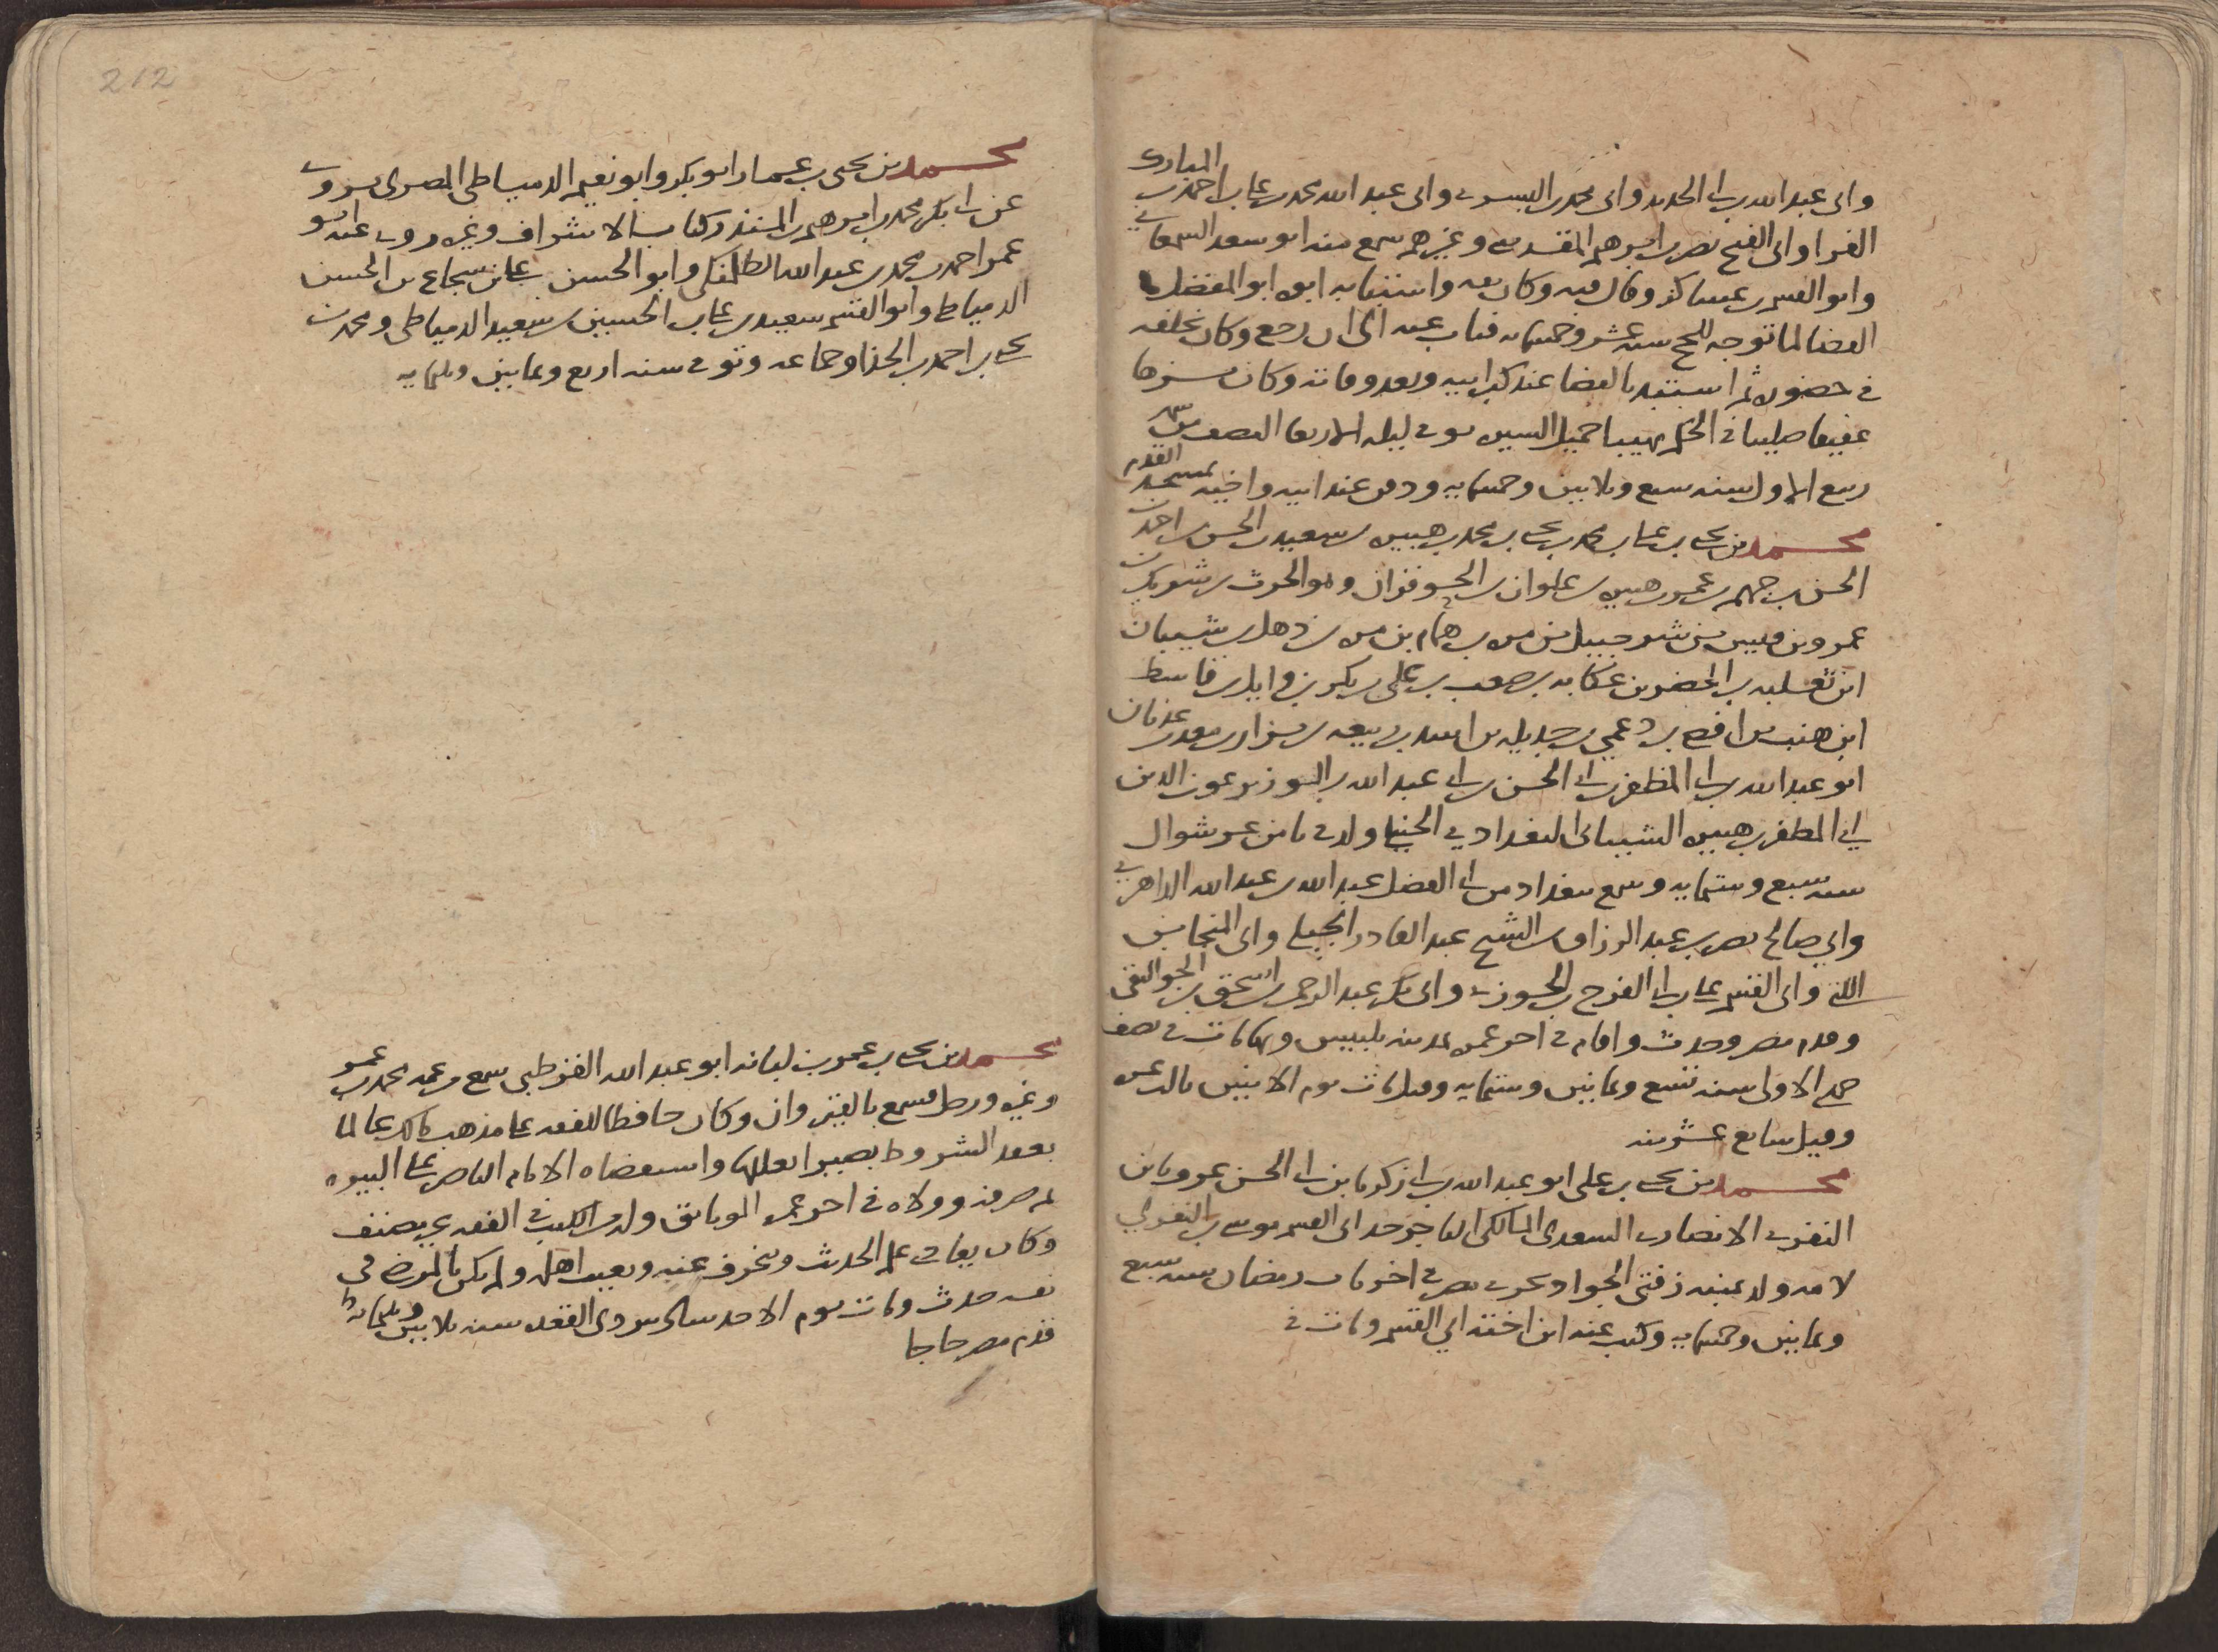 المبارك
وابى عبد الله بن ابى الحديد وابى محمد بن البسرى وابى عبد الله محمد بن على بن احمد بن
الفرا وابى الفتح نصر بن ابرهيم المقدسى وغيرهم سمع منه ابو سعد السمعانى
وابو القسم بن عساكر وقال فيه وكان ثقه واستنابه ابوه ابو المفضل
القضا لما توجه للحج سنه عشر وخمسمايه فناب عنه الى ان رجع وكان يخلفه
فى حضوره ثم استبد بالقضا عند كبر ابيه وبعد وفاته وكان نزها
عفيفا صليبا فى الحكم مهيبا جميل السيره توفى ليله الاربعا النصف من شهر
ربيع الاول سنه سبع وثلاثين وخمسمايه ودفن عند ابيه واخيه بمسجد القدم
محمد بن يحيى بن على بن محمد بن يحيى بن محمد بن هبيره بن سعيد بن الحسن بن احمد بن
الحسن بن جهم بن عمر بن هبيره بن علوان بن الحوفزان وهو الحرث بن شريك بن
عمرو بن قيس بن شرحبيل بن مره بن همام بن مره بن ذهل بن شيبان
ابن ثعلبه بن الحضر بن عكابه بن صعب بن على بن بكر بن وايل بن قاسط
ابن هنب بن افصى بن دعمى بن جديله بن اسد بن ربيعه بن نزار بن معد بن عدنان
ابو عبد الله بن ابى المظفر بن ابى الحسن بن ابى عبد الله بن الوزير عون الدين
ابى المظفر بن هبيره الشيبانى البغدادى الحنبلى ولد فى ثامن عشر شوال
سنه سبع وستمايه وسمع ببغداد من ابى الفضل عبد الله بن عبد الله الداهرى
وابى صالح نصر بن عبد الرزاق بن الشيخ عبد القادر الجيلى وابى المنجا بن
اللتى وابى القسم على بن ابى الفرج بن الجوزى وابى بكر عبد الرحمن بن اسحق بن الجواليقى
وقدم مصر وحدث واقام فى اخر عمره بمدينه بلبيس وبها مات فى نصف
جمادى الاولى سنه تسع وثمانين وستمايه وقيل مات يوم الاثنين ثالث عشر
وقيل سابع عشرينه
محمد بن يحيى بن على ابو عبد الله بن ابى زكريا بن ابى الحسن عرف بابن
النفزى الانصارى السعدى المالكى التاجر جد ابى القسم موسى بن النفزى
لامه ولد بمنيه زفتى الجواد بحرى مصر فى اخريات رمضان سنه سبع
وثمانين وخمسمايه وكتب عنه ابن اخته ابى القسم ومات فى
212
محمد بن يحيى بن عمار ابو بكر وابو نعيم الدمياطى المصرى يروى
عن ابى بكر محمد بن ابرهيم بن المنذر كتاب الاشراف وغيره روى عنه ابو
عمر احمد بن محمد بن عبد الله الطلمنكى وابو الحسن على بن شجاع بن الحسن
الدمياطى وابو القسم سعيد بن على بن الحسين بن سعيد الدمياطى ومحمد بن
يحيى بن احمد بن الحذا وجماعه وتوفى سنه اربع وثمانين وثلثمايه
محمد بن يحيى بن عمر بن لبابه ابو عبد الله القرطبى سمع من عمه محمد بن عمر
وغيره ورحل فسمع بالقيروان وكان حافظا للفقه على مذهب مالك عالما
بعقد الشروط بصيرا بعللها واستقضاه الامام الناصر على البيره
ثم صرفه وولاه فى اخر عمره الوثايق وله من الكتب فى الفقه يصنف
وكان يعاب علم الحديث وينحرف عنه ويعيب اهله ولم يكن بالمرضى فى
نفسه حدث ومات يوم الاحد سادس ذى القعده سنه ثلاثين وثلثمايه
قدم مصر حاجا